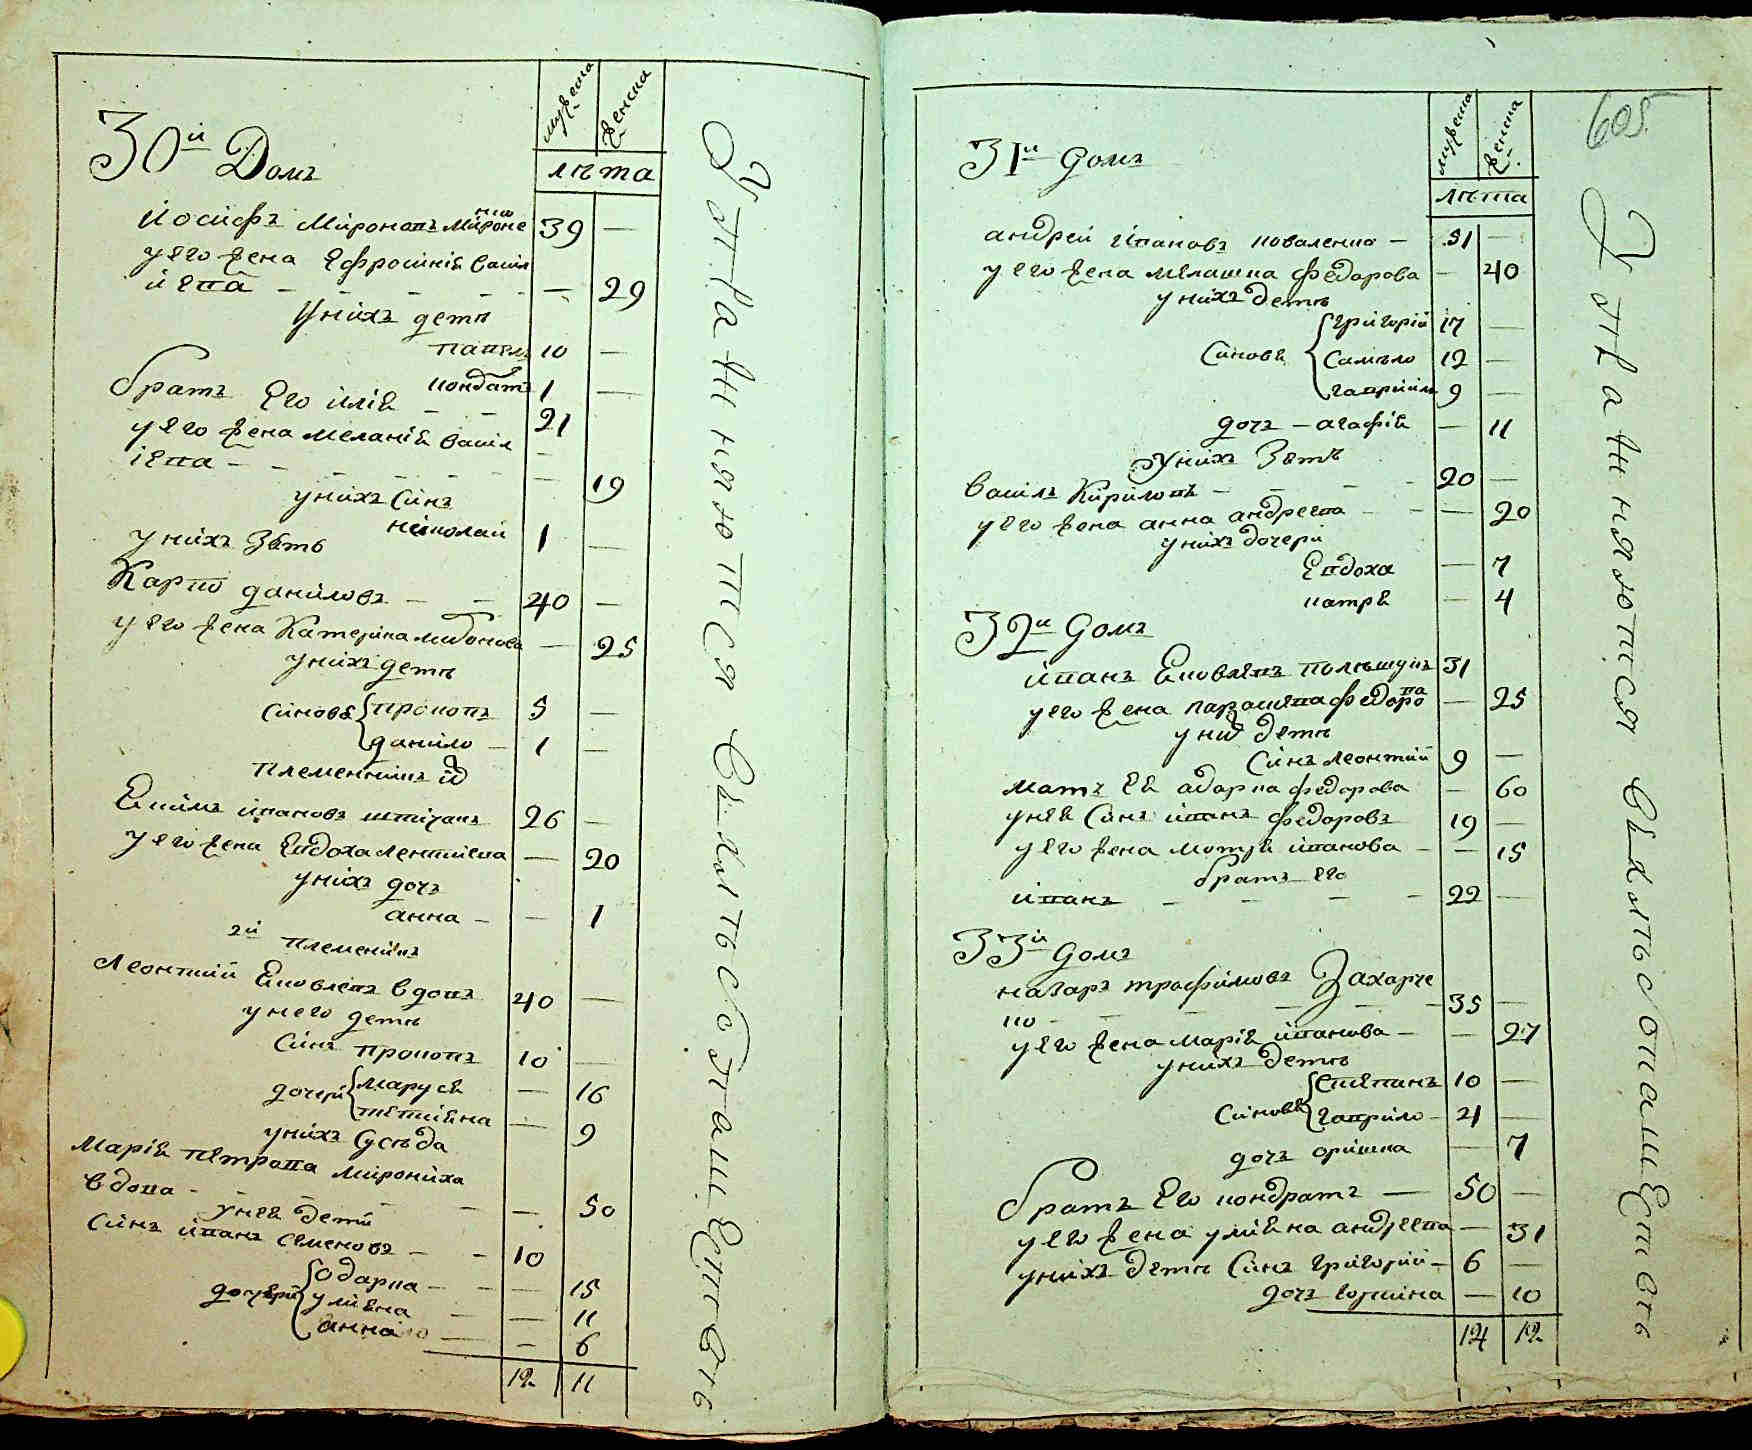 мужеска
женска
лѣта
30й Домъ
Йосифъ Мироновъ Мироненко 39 —
у его жена Ефросиния Васил
иева — 29
у нихъ дети
павелъ 10 —
кондратъ 1 —
братъ Его илія 21
у его жена меланія васил
іева — 19
у нихъ синъ
николай 1 —
у нихъ зять
Карпо даниловъ — 40 —
у его жена Катерина — 25
у нихъ дети
синовя прокопъ 5 —
данило — 1 —
племенникъ
Еким ивановъ 26 —
у его жена Евдоха леонтиева — 20
у нихъ доч
анна — — 1
2й племеник
Леонтий Яковлевъ вдовъ 40 —
у него дети
синъ прокопъ 10 —
дочери маруся — 16
тетияна — 9
у нихъ сусѣда
Марія петрова мирониха
вдова — — 50
у нея дети
синъ иванъ семеновъ — 10
дочери одарка — — 15
улияна — 11
анна — 6
12 11
мужеска
женска
лѣта
605
31й домъ
андрей ивановъ коваленко — 51 —
у его жена мелашка федорова — 40
у нихъ дети
синовя григорий 17 —
самъло 12 —
гаврийло 9 —
доч — агафія — 11
у нихъ зять
Василъ Кириловъ — 20 —
у его жена анна андреева — — 20
у нихъ дочери
Евдоха — 7
матря — 4
32й домъ
иванъ Яковлевъ полѣщукъ 31
у его жена параскева федорова — 25
у них дети
синъ леонтий 9 —
мать Ея одарка федорова — 60
у нея синъ иванъ федоровъ 19 —
у его жена мотря иванова — — 15
братъ его
иванъ — 22 —
33й домъ
назаръ трофимовъ Захарче
нко — 35 —
у его жена марія иванова — — 27
у нихъ дети
синовя степанъ 10 —
гаврило — 21 —
доч оришка — 7
братъ Его кондратъ — 50 —
у его жена улияна андреева — 31
у нихъ дети синъ григорий — 6 —
доч — 10
14 12